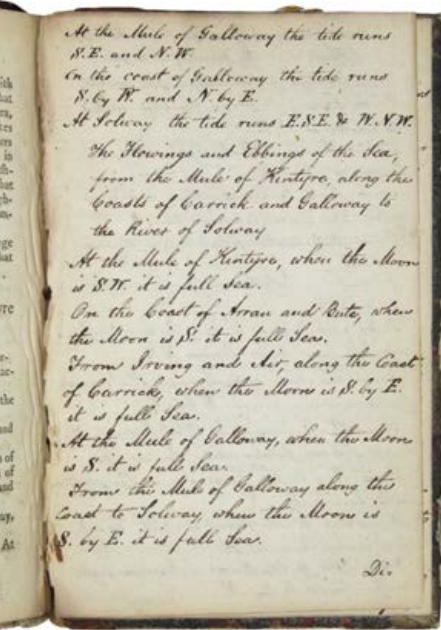 At the Mule of Galloway the tide runs
S.E. and N.W.
On the coast of Galloway the tide runs
S. by W. and N. by E.
At Solway the tide runs E.S.E. & W.N.W.
The Flowings and Ebbings of the Sea,
from the Mule of Kintyre, along the
Coasts of Carrick and Galloway to
the River of Solway
At the Mule of Kintyre, when the Moon
is S.W. it is full sea.
On the Coast of Arran and Bute, when
the Moon is S. it is full Sea.
From Irving and Air, along the Coast
of Carrick, when the Moon is S. by E.
it is full Sea.
At the Mule of Galloway, when the Moon
is S. it is full Sea.
From the Mule of Galloway along the
Coast to Solway, when the Moon is
S. by E. it is full Sea.
Di-